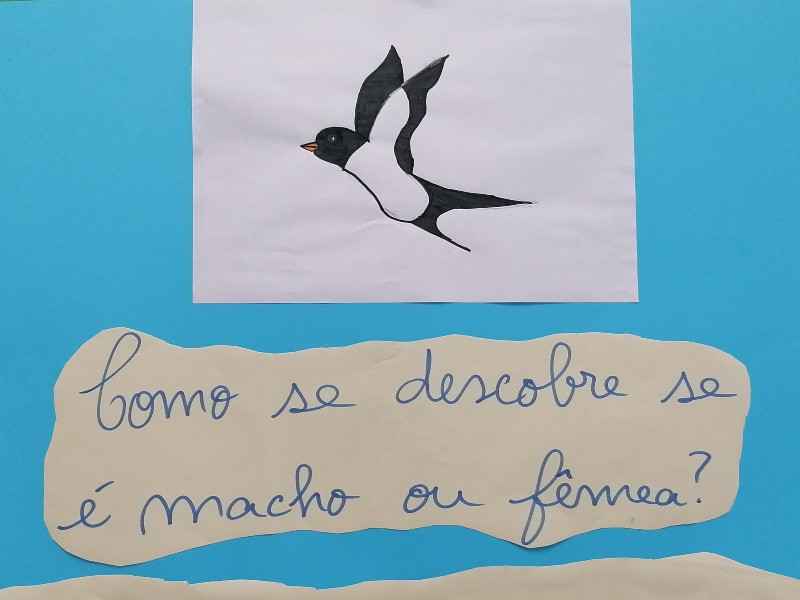 Como se descobre se
é macho ou fêmea?